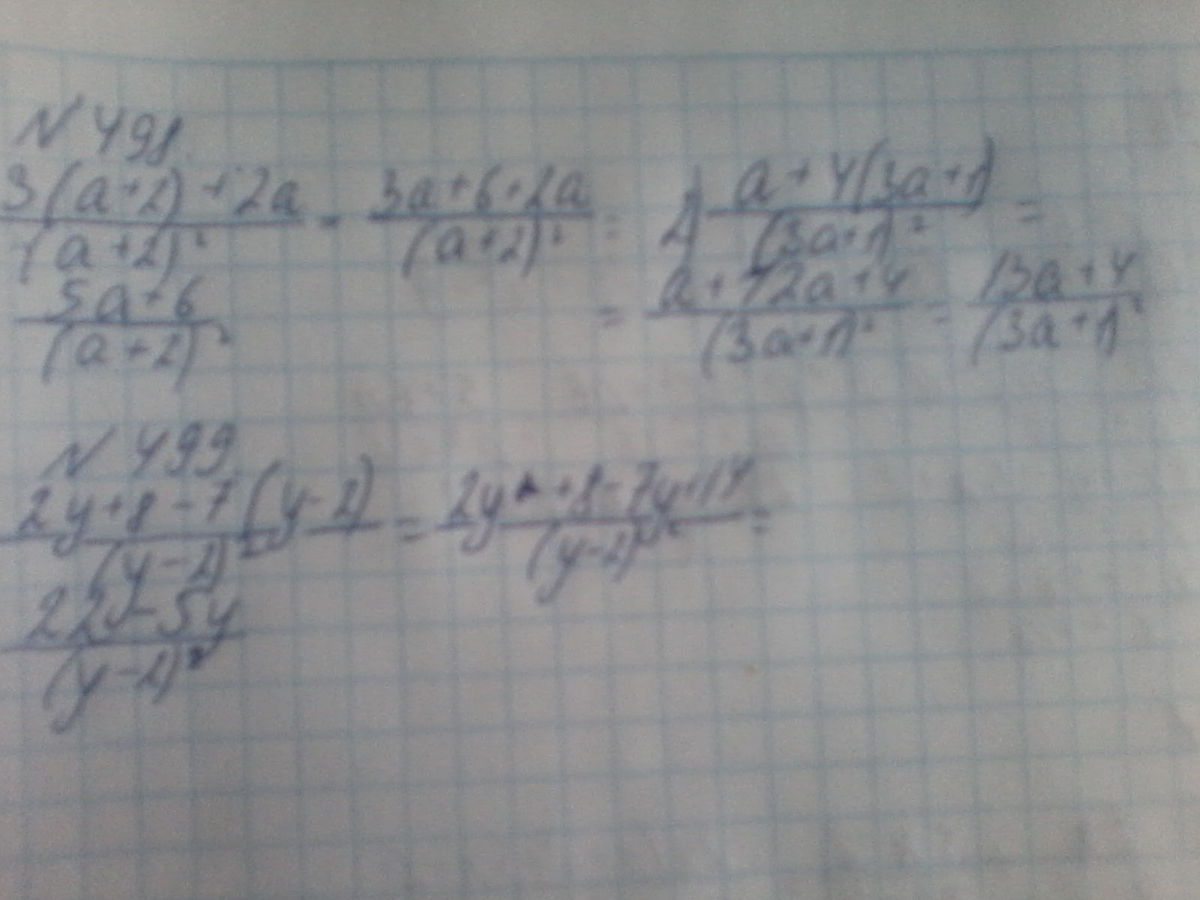 N 498
3(a+2)+2a/(a+2)² = 3a+6+2a/(a+2)² =
5a+6/(a+2)²
2) a+4(3a+1)/(3a+1)² =
= a+12a+4/(3a+1)² = 13a+4/(3a+1)²
N 499
2y+8-7(y-2)/(y-2)² = 2y+8-7y+14/(y-2)² =
22-5y/(y-2)²